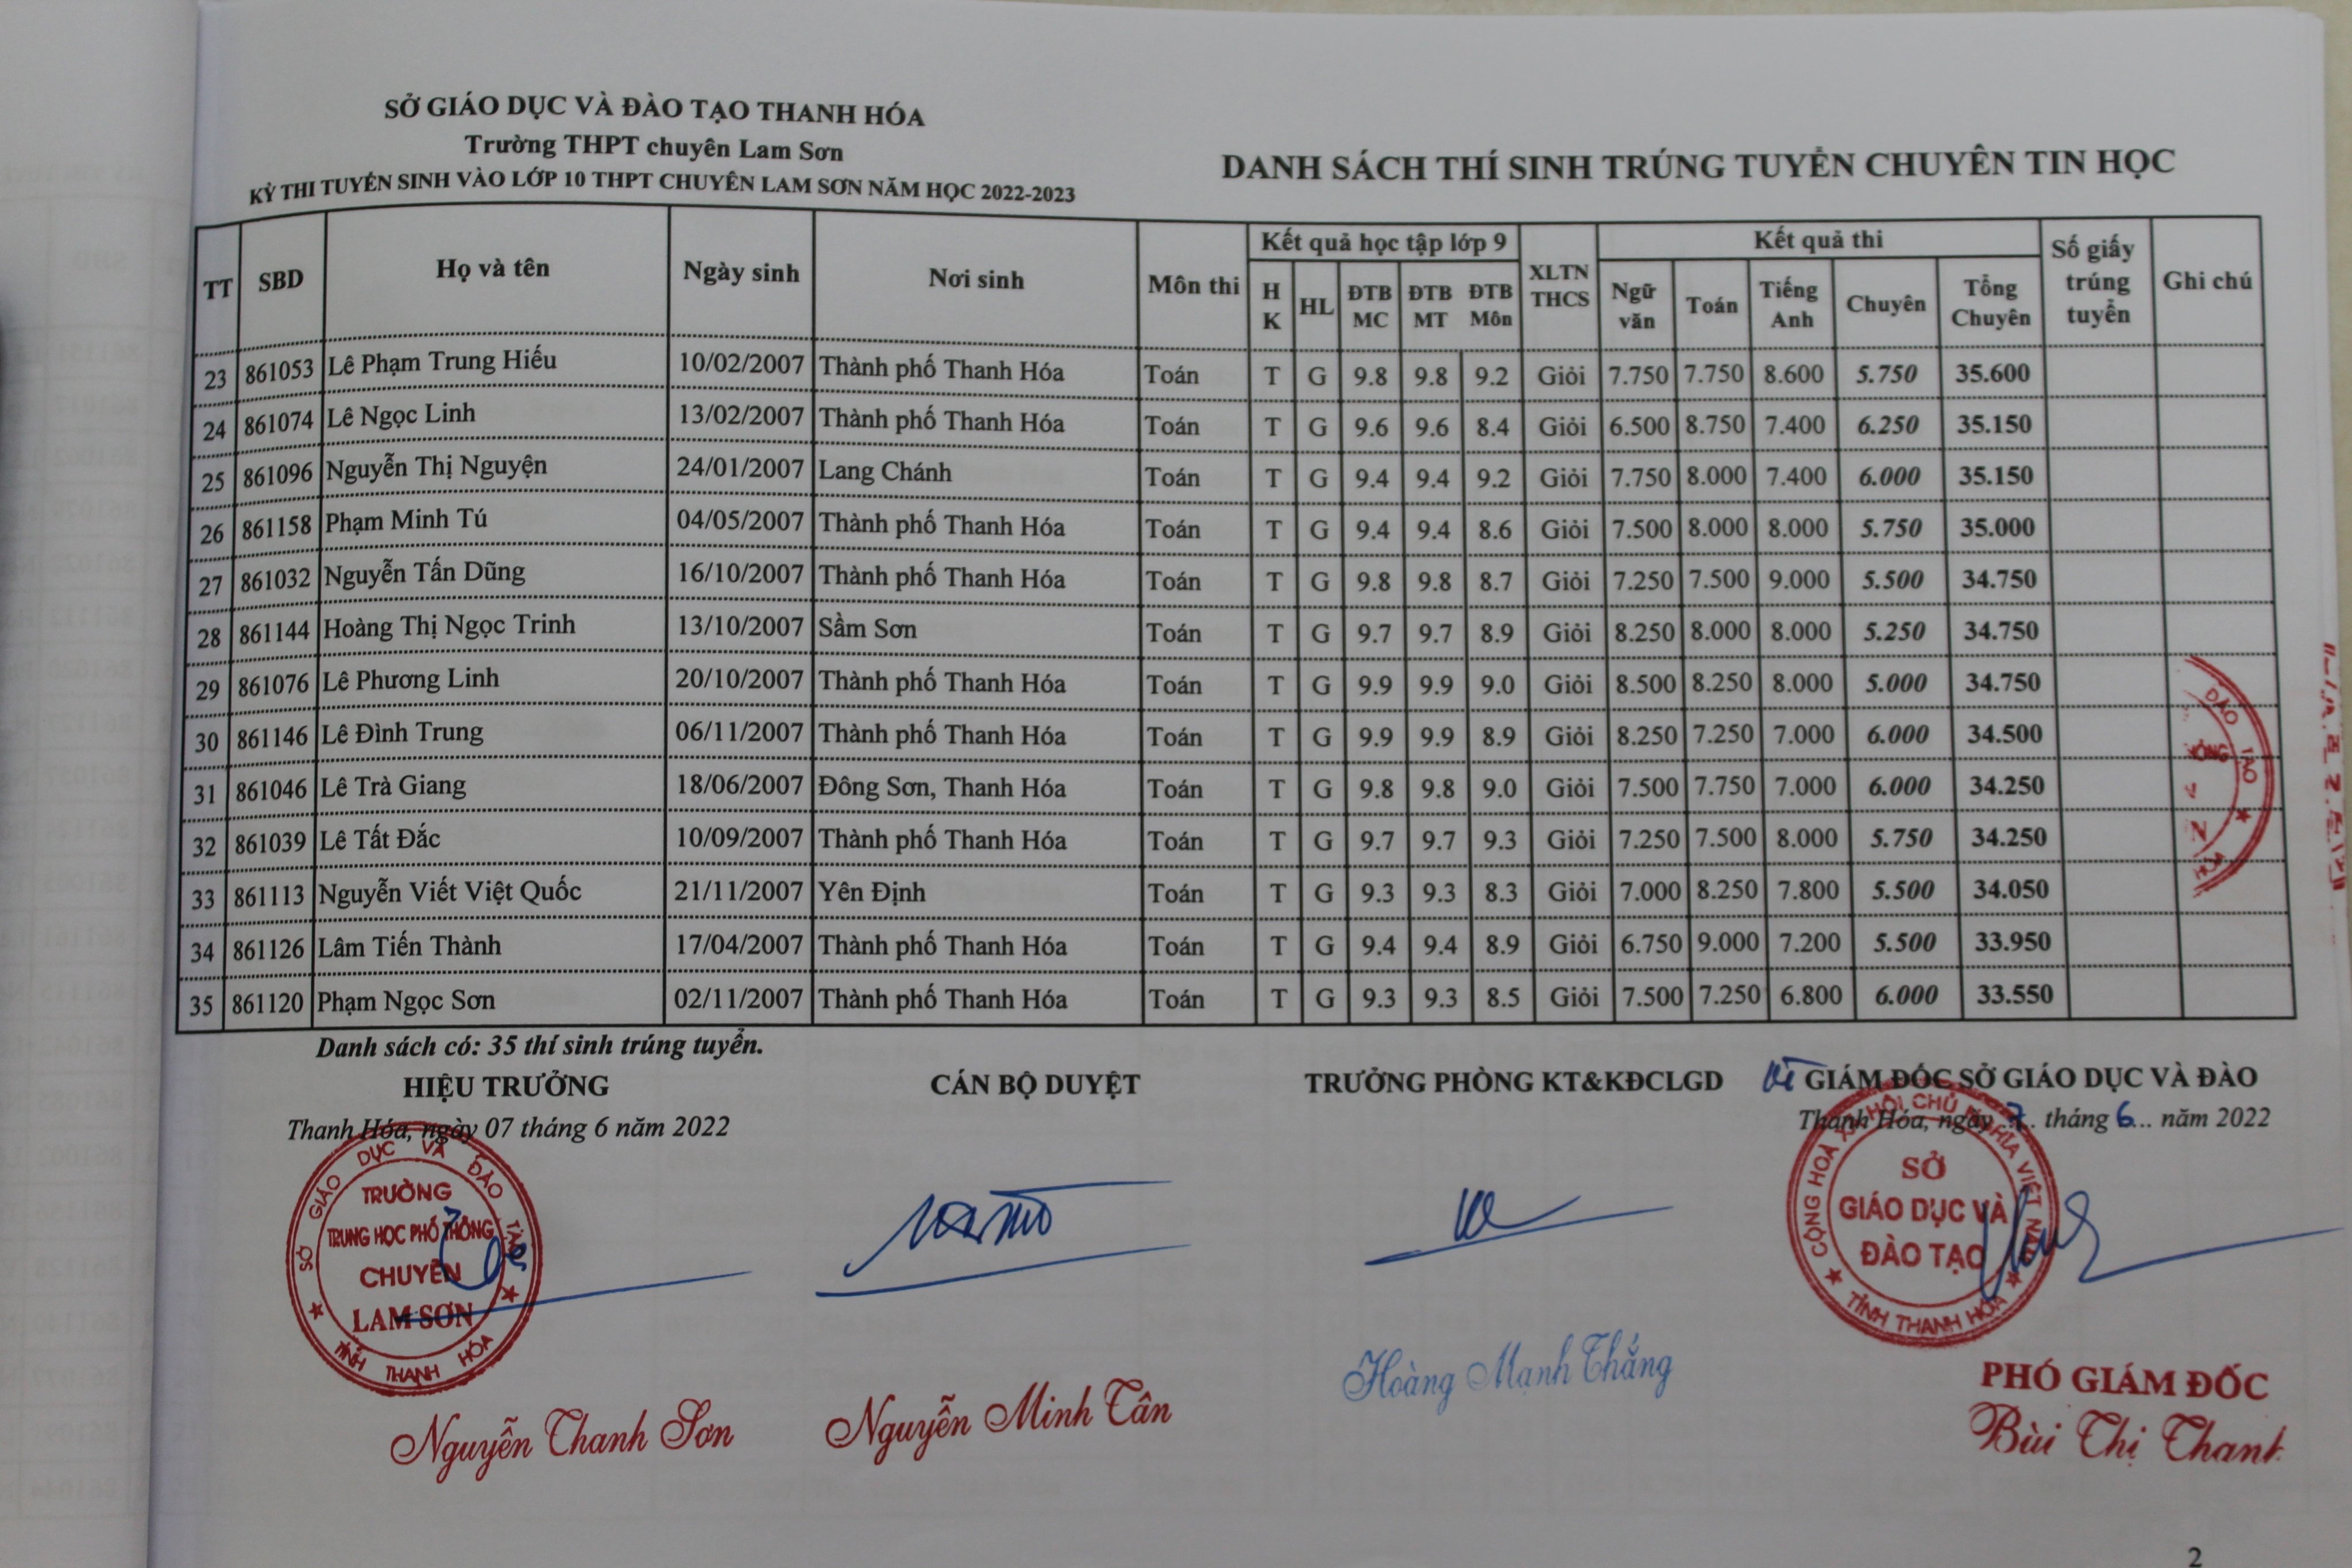 SỞ GIÁO DỤC VÀ ĐÀO TẠO THANH HÓA
Trường THPT chuyên Lam Sơn
KỲ THI TUYỂN SINH VÀO LỚP 10 THPT CHUYÊN LAM SƠN NĂM HỌC 2022-2023
DANH SÁCH THÍ SINH TRÚNG TUYỂN CHUYÊN TIN HỌC
TT SBD Họ và tên Ngày sinh Nơi sinh Môn thi Kết quả học tập lớp 9 XLTN THCS Kết quả thi Số giấy trúng tuyển Ghi chú
HK HL ĐTB MC ĐTB MT ĐTB Môn Ngữ văn Toán Tiếng Anh Chuyên Tổng Chuyên
23 861053 Lê Phạm Trung Hiếu 10/02/2007 Thành phố Thanh Hóa Toán T G 9.8 9.8 9.2 Giỏi 7.750 7.750 8.600 5.750 35.600
24 861074 Lê Ngọc Linh 13/02/2007 Thành phố Thanh Hóa Toán T G 9.6 9.6 8.4 Giỏi 6.500 8.750 7.400 6.250 35.150
25 861096 Nguyễn Thị Nguyện 24/01/2007 Lang Chánh Toán T G 9.4 9.4 9.2 Giỏi 7.750 8.000 7.400 6.000 35.150
26 861158 Phạm Minh Tú 04/05/2007 Thành phố Thanh Hóa Toán T G 9.4 9.4 8.6 Giỏi 7.500 8.000 8.000 5.750 35.000
27 861032 Nguyễn Tấn Dũng 16/10/2007 Thành phố Thanh Hóa Toán T G 9.8 9.8 8.7 Giỏi 7.250 7.500 9.000 5.500 34.750
28 861144 Hoàng Thị Ngọc Trinh 13/10/2007 Sầm Sơn Toán T G 9.7 9.7 8.9 Giỏi 8.250 8.000 8.000 5.250 34.750
29 861076 Lê Phương Linh 20/10/2007 Thành phố Thanh Hóa Toán T G 9.9 9.9 9.0 Giỏi 8.500 8.250 8.000 5.000 34.750
30 861146 Lê Đình Trung 06/11/2007 Thành phố Thanh Hóa Toán T G 9.9 9.9 8.9 Giỏi 8.250 7.250 7.000 6.000 34.500
31 861046 Lê Trà Giang 18/06/2007 Đông Sơn, Thanh Hóa Toán T G 9.8 9.8 9.0 Giỏi 7.500 7.750 7.000 6.000 34.250
32 861039 Lê Tất Đắc 10/09/2007 Thành phố Thanh Hóa Toán T G 9.7 9.7 9.3 Giỏi 7.250 7.500 8.000 5.750 34.250
33 861113 Nguyễn Viết Việt Quốc 21/11/2007 Yên Định Toán T G 9.3 9.3 8.3 Giỏi 7.000 8.250 7.800 5.500 34.050
34 861126 Lâm Tiến Thành 17/04/2007 Thành phố Thanh Hóa Toán T G 9.4 9.4 8.9 Giỏi 6.750 9.000 7.200 5.500 33.950
35 861120 Phạm Ngọc Sơn 02/11/2007 Thành phố Thanh Hóa Toán T G 9.3 9.3 8.5 Giỏi 7.500 7.250 6.800 6.000 33.550
ĐÀO TẠO
Danh sách có: 35 thí sinh trúng tuyển.
HIỆU TRƯỞNG CÁN BỘ DUYỆT TRƯỞNG PHÒNG KT&KĐCLGD GIÁM ĐỐC SỞ GIÁO DỤC VÀ ĐÀO
Thanh Hóa, ngày 07 tháng 6 năm 2022
Thanh Hóa, ngày 7.. tháng 6... năm 2022
SỞ GIÁO DỤC VÀ ĐÀO TẠO
TRƯỜNG
TRUNG HỌC PHỔ THÔNG
CHUYÊN
LAM SƠN
TỈNH THANH HÓA
CỘNG HOÀ XÃ HỘI CHỦ NGHĨA VIỆT NAM
SỞ
GIÁO DỤC VÀ
ĐÀO TẠO
TỈNH THANH HÓA
Nguyễn Thanh Sơn
Nguyễn Minh Tân
Hoàng Mạnh Thắng
PHÓ GIÁM ĐỐC
Bùi Thị Thanh
2